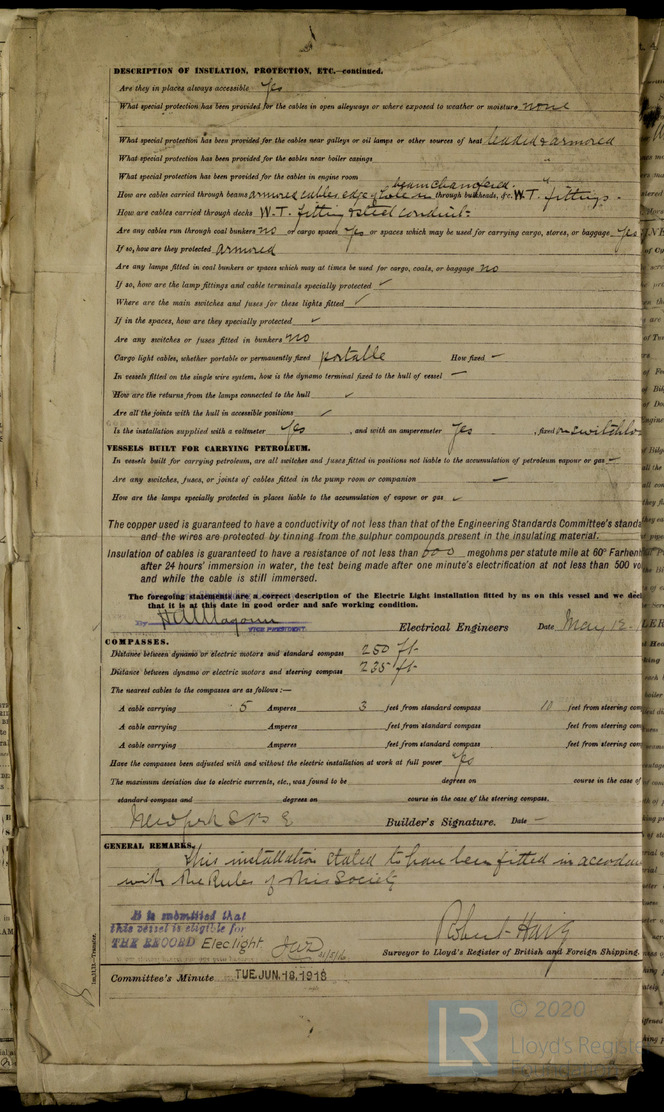 DESCRIPTION OF INSULATION, PROTECTION, ETC.—continued.
Are they in places always accessible Yes
What special protection has been provided for the cables in open alleyways or where exposed to weather or moisture none
What special protection has been provided for the cables near galleys or oil lamps or other sources of heat leaded & armored
What special protection has been provided for the cables near boiler casings "
What special protection has been provided for the cables in engine room "
How are cables carried through beams armored cables edge of hole in beam chamfered. through bulkheads, &c. W.T. fittings.
How are cables carried through decks W.T. fitting & steel conduit.
Are any cables run through coal bunkers no or cargo spaces Yes or spaces which may be used for carrying cargo, stores, or baggage Yes
If so, how are they protected armored
Are any lamps fitted in coal bunkers or spaces which may at times be used for cargo, coals, or baggage no
If so, how are the lamp fittings and cable terminals specially protected ✓
Where are the main switches and fuses for these lights fitted ✓
If in the spaces, how are they specially protected ✓
Are any switches or fuses fitted in bunkers no
Cargo light cables, whether portable or permanently fixed portable How fixed —
In vessels fitted on the single wire system, how is the dynamo terminal fixed to the hull of vessel —
How are the returns from the lamps connected to the hull ✓
Are all the joints with the hull in accessible positions ✓
Is the installation supplied with a voltmeter Yes , and with an amperemeter Yes , fixed on switchbo
VESSELS BUILT FOR CARRYING PETROLEUM.
In vessels built for carrying petroleum, are all switches and fuses fitted in positions not liable to the accumulation of petroleum vapour or gas —
Are any switches, fuses, or joints of cables fitted in the pump room or companion —
How are the lamps specially protected in places liable to the accumulation of vapour or gas ✓
The copper used is guaranteed to have a conductivity of not less than that of the Engineering Standards Committee's stand
and the wires are protected by tinning from the sulphur compounds present in the insulating material.
Insulation of cables is guaranteed to have a resistance of not less than 600 megohms per statute mile at 60° Farhenh
after 24 hours' immersion in water, the test being made after one minute's electrification at not less than 500 vo
and while the cable is still immersed.
The foregoing statements are a correct description of the Electric Light installation fitted by us on this vessel and we decl
that it is at this date in good order and safe working condition.
By VICE PRESIDENT Electrical Engineers Date May
COMPASSES.
Distance between dynamo or electric motors and standard compass 250 ft
Distance between dynamo or electric motors and steering compass 235 ft
The nearest cables to the compasses are as follows:—
A cable carrying 5 Amperes 3 feet from standard compass 10 feet from steering com
A cable carrying Amperes feet from standard compass feet from steering com
A cable carrying Amperes feet from standard compass feet from steering com
Have the compasses been adjusted with and without the electric installation at work at full power Yes
The maximum deviation due to electric currents, etc., was found to be degrees on course in the case of
standard compass and degrees on course in the case of the steering compass.
Builder's Signature. Date —
GENERAL REMARKS.
This installation stated to have been fitted in accordan
with the Rules of this Society
It is submitted that
this vessel is eligible for
THE RECORD Elec light
Robert Haig
Surveyor to Lloyd's Register of British and Foreign Shipping.
Committee's Minute TUE. JUN. 18. 1918
© 2020
LR Lloyd's Registe